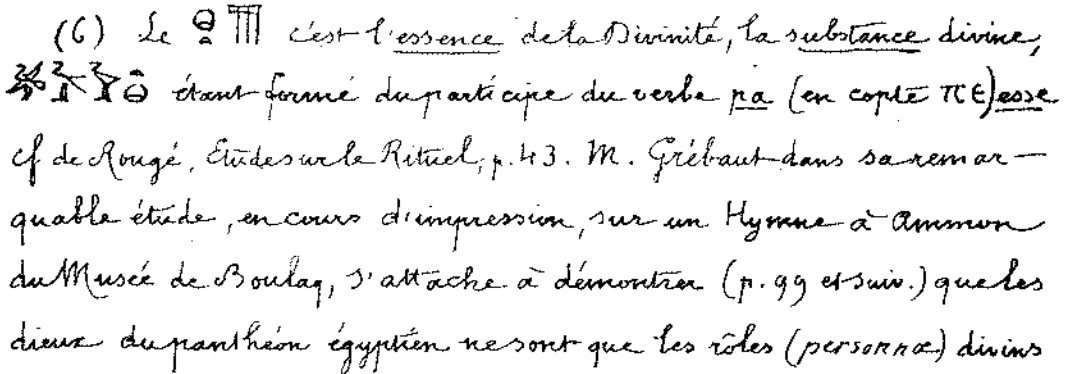 (6) Le c'est l'essence de la Divinité, la substance divine,
étant formé du participe du verbe pa (en copte ⲡⲉ) esse
cf de Rougé, Etude sur le Rituel, p. 43. M. Grébaut dans sa remar—
quable étude, en cours d'impression, sur un Hymne à Ammon
du Musée de Boulaq, s'attache à démontrer (p. 99 et suiv.) que les
dieux du panthéon égyptien ne sont que les rôles (personnæ) divins